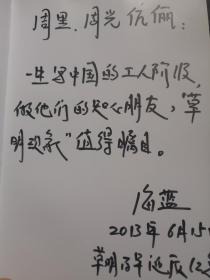 周里、周光伉俪:
一生写中国的工人阶级,
做他们的知心朋友,“草
明现象”值得瞩目。
海蓝
2013年6月15
草明百年诞辰